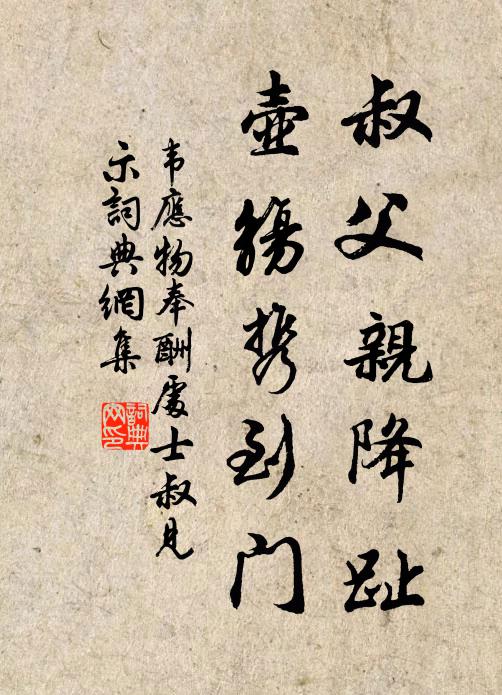 叔父親降趾
壺觴攜到門
韦應物奉酬處士叔見
示詞典網集
詞典网印